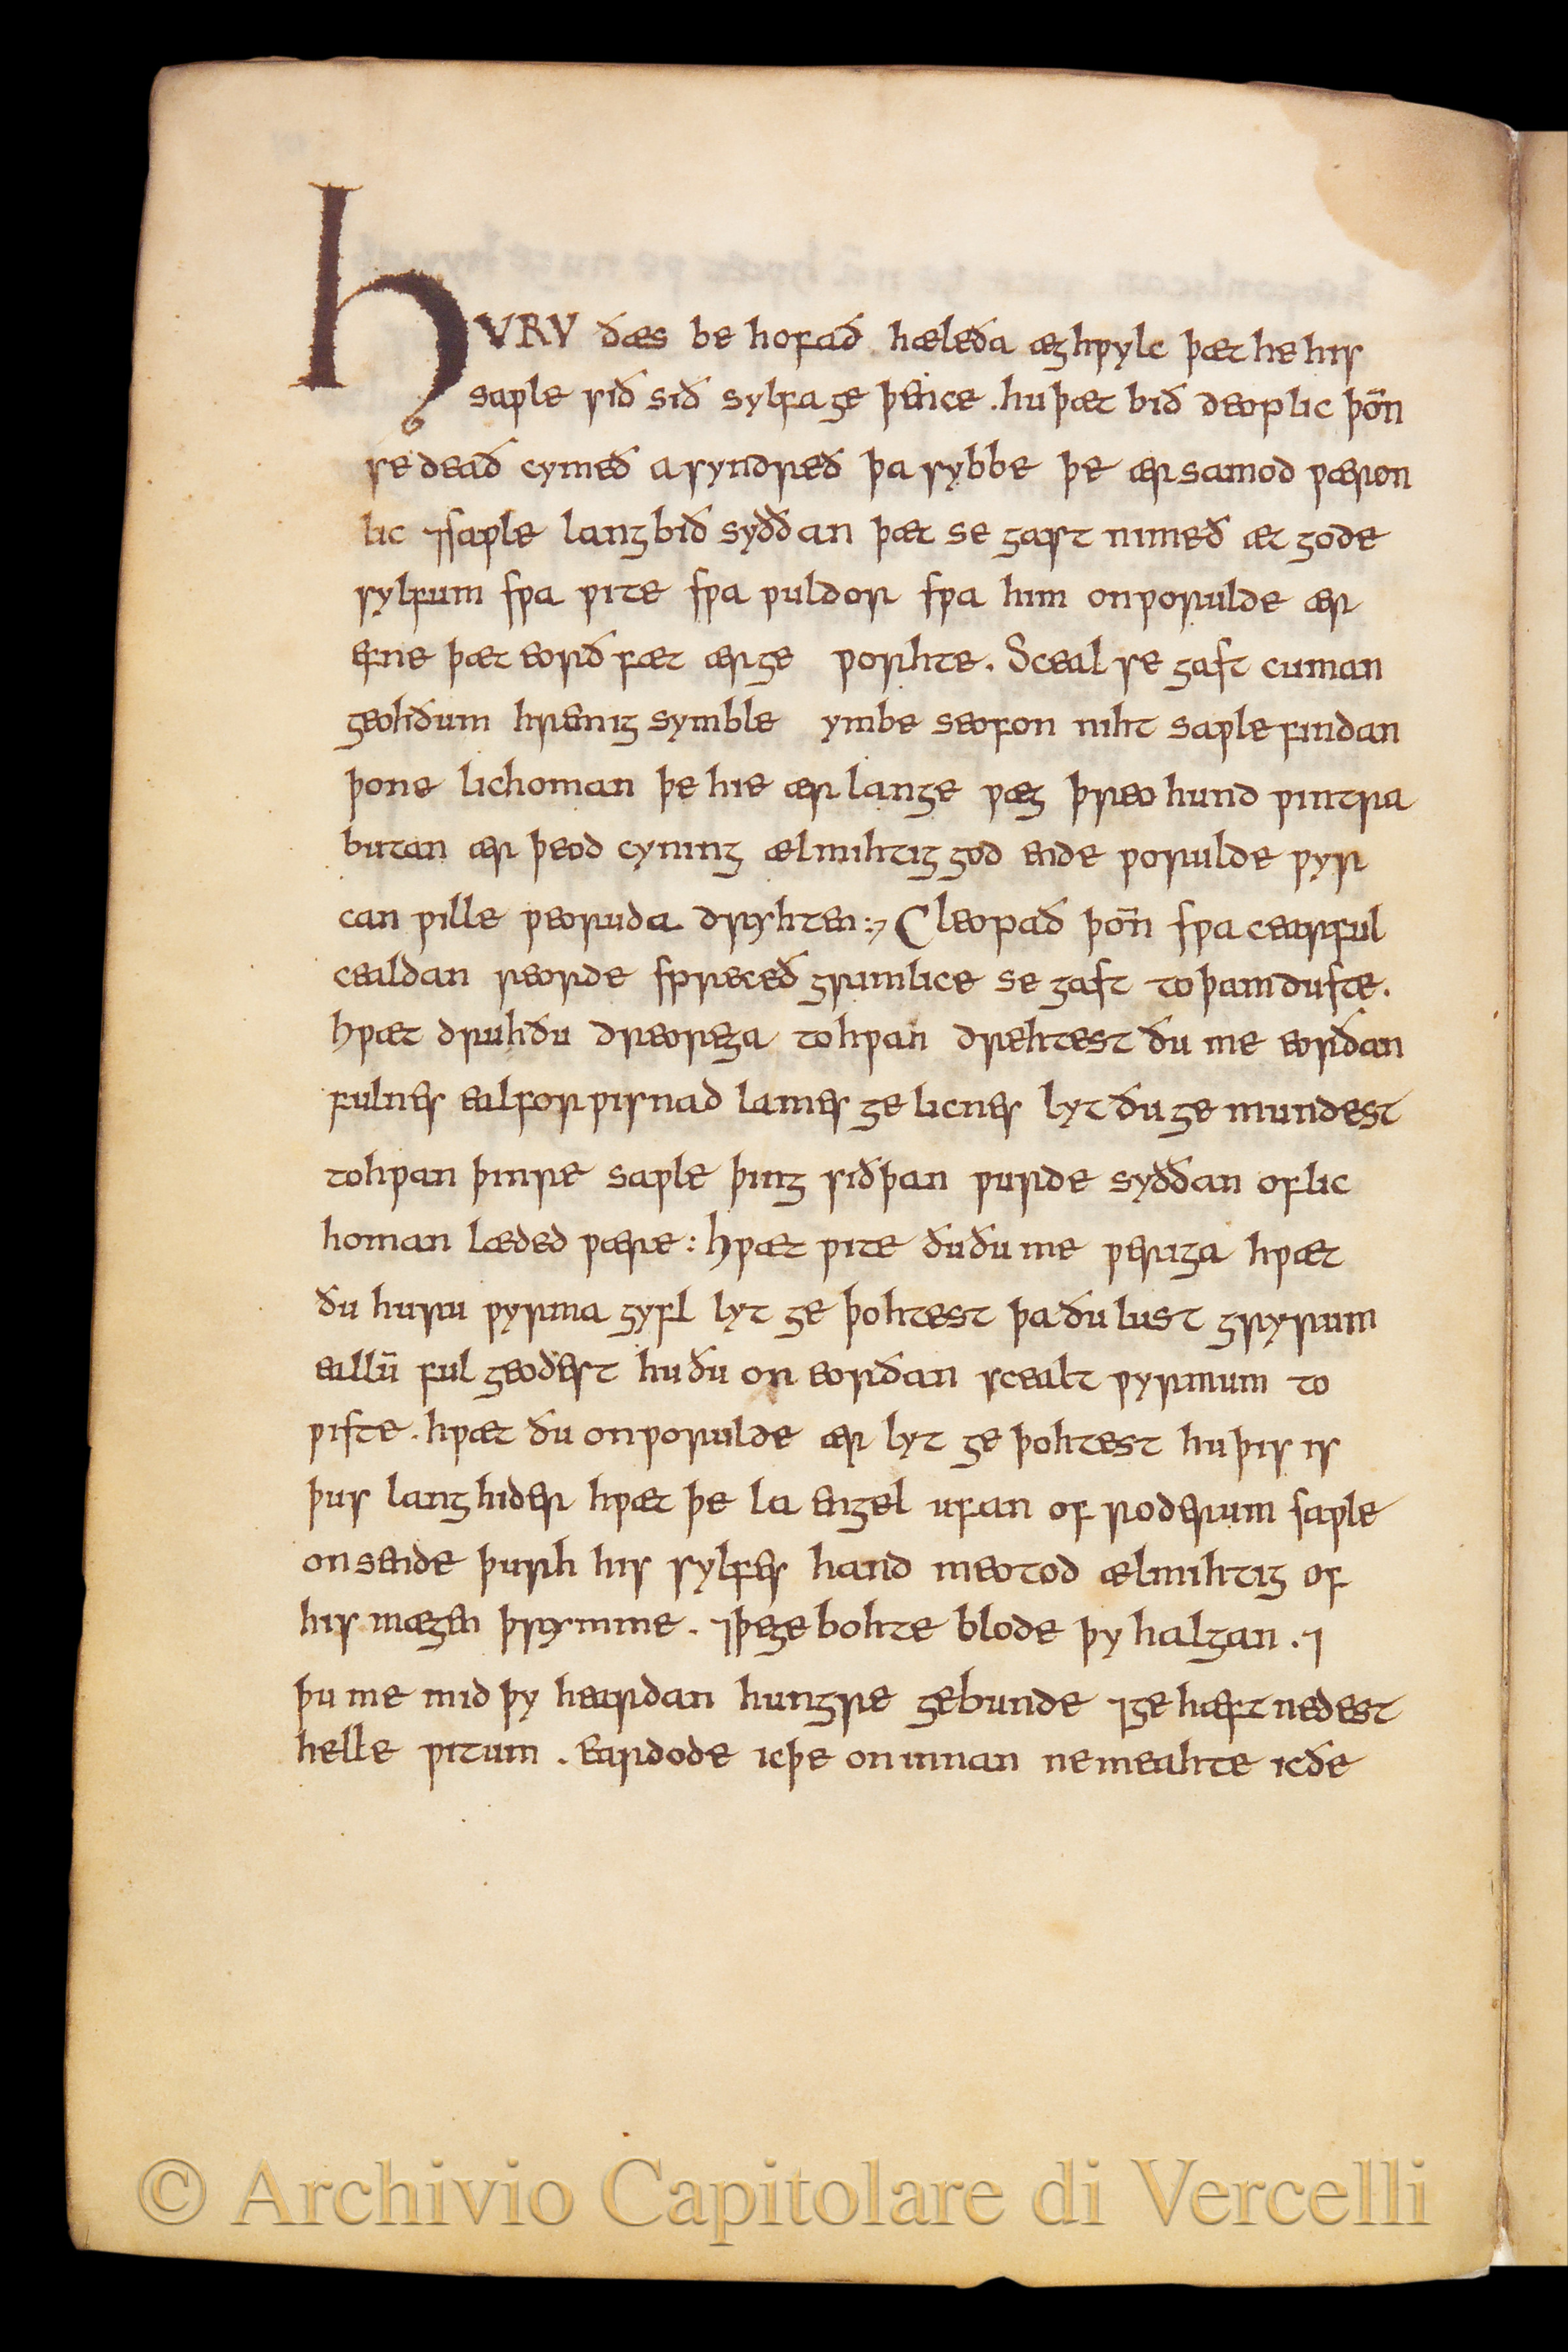 HVRV ðæs be hofað hæleða æghƿylc þæt he his
saƿle sið sið sylfa ge þence . hu þæt bið deoplic þoñ
se deað cymeð asyndreð þa sybbe þe ær samod ƿæron
lic ⁊ saƿle lang bið syððan þæt se gast nimeð æt gode
sylfum sƿa ƿite sƿa ƿuldor sƿa him onƿorulde ær
efne þæt eorð fæt ær ge ƿorhte . Sceal se gast cuman
geohðum hremig symble ymbe seofon niht saƿle findan
þone lichoman þe hie ær lange ƿæg þreo hund ƿintra
butan ær þeod cyning ælmihtig god ende ƿorulde ƿyr
can ƿille ƿeoruda dryhten :⁊ Cleopað þoñ sƿa cearful
cealdan reorde sƿreceð grimlice se gast to þam duste .
Hƿæt druhðu dreorega tohƿan drehtest ðu me eorðan
fulnes eal forƿisnad lames ge licnes lyt ðu ge mundest
tohƿan þinre saƿle þing siðþan ƿurde syððan of lic
homan læded ƿære : Hƿæt ƿite ðu ðu me ƿeriga hƿæt
ðu huru ƿyrma gyfl lyt ge þohtest þa ðu lust gryrum
eallū ful geodest hu ðu on eorðan scealt ƿyrmum to
ƿiste . hƿæt ðu onƿorulde ær lyt ge þohtest hu þis is
þus lang hider hƿæt þe la engel ufan of roderum saƿle
onsende þurh his sylfes hand meotod ælmihtig of
his mægen þrymme . ⁊ þe ge bohte blode þy halgan . ⁊
þu me mid þy heardan hungre gebunde ⁊ ge hæft nedest
helle ƿitum . Eardode ic þe on innan ne meahte ic ðe
© Archivio Capitolare di Vercelli